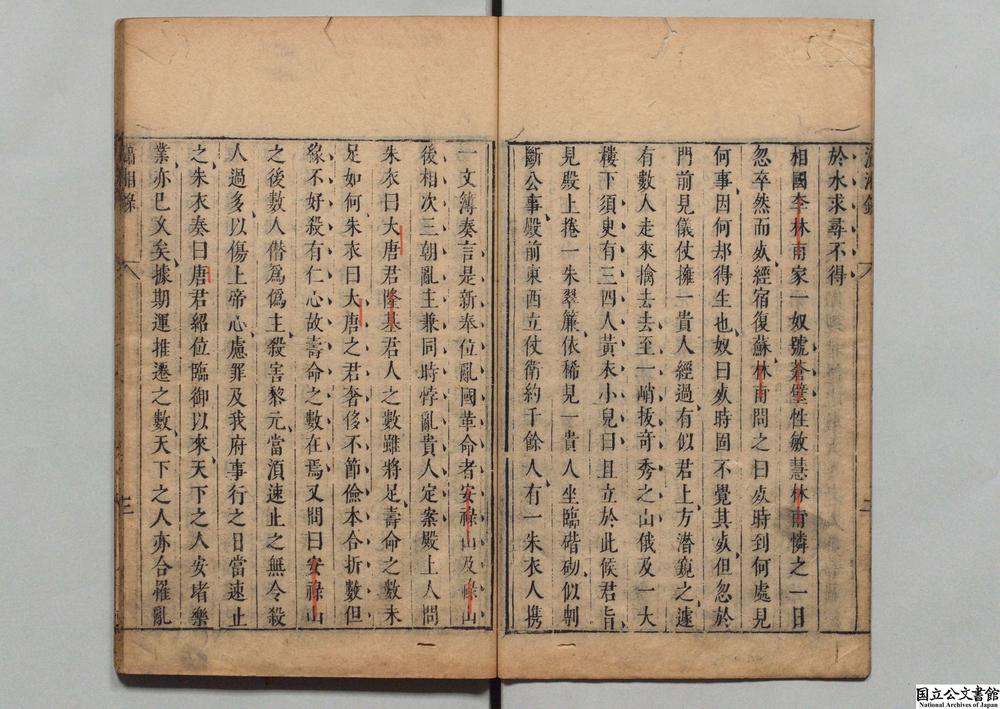 瀟湘錄
二
於水求尋不得
相國李林甫家一奴號蒼璧性敏慧林甫憐之一日
忽卒然而死經宿復蘇林甫問之曰死時到何處見
何事因何却得生也奴曰死時固不覺其死但忽於
門前見儀仗擁一貴人經過有似君上方潛窺之遽
有數人走來擒去去至一峭拔奇秀之山俄及一大
樓下須臾有三四人黃衣小兒曰且立於此候君旨
見殿上捲一朱翠簾依稀見一貴人坐臨砌似剸
斷公事殿前東西立仗衛約千餘人有一朱衣人携
一文簿奏言是新奉位亂國革命者安祿山及祿山
後相次三朝亂主兼同時悖亂貴人定案殿上人問
朱衣曰大唐君隆基君人之數雖將足壽命之數未
足如何朱衣曰大唐之君奢侈不節儉本合折數但
緣不好殺有仁心故壽命之數在焉又問曰安祿山
之後數人僭爲僞主殺害黎元當須速止之無令殺
人過多以傷上帝心慮罪及我府事行之日當速止
之朱衣奏曰唐君紹位臨御以來天下之人安堵樂
業亦已久矣據期運推遷之數天下之人亦合罹亂
瀟湘錄
三
国立公文書館
National Archives of Japan